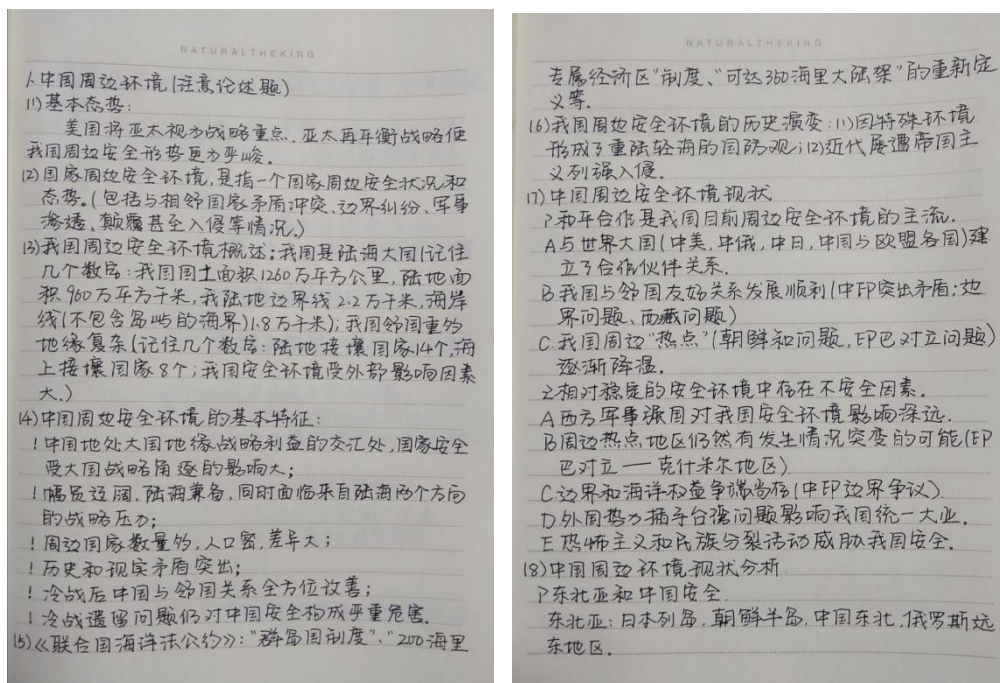 NATURALTHEKING
1、中国周边环境(注意论述题)
(1)基本态势:
美国将亚太视为战略重点,亚太再平衡战略使
我国周边安全形势更为严峻。
(2)国家周边安全环境,是指一个国家周边安全状况和
态势。(包括与相邻国家矛盾冲突、边界纠纷、军事
渗透、颠覆甚至入侵等情况。)
(3)我国周边安全环境概述:我国是陆海大国(记住
几个数字:我国国土面积1260万平方公里,陆地面
积960万平方千米,我陆地边界线2.2万千米,海岸
线(不包含岛屿的海界)1.8万千米);我国邻国重多
地缘复杂(记住几个数字:陆地接壤国家14个,海
上接壤国家8个;我国安全环境受外部影响因素
大。)
(4)中国周边安全环境的基本特征:
!中国地处大国地缘战略利益的交汇处,国家安全
受大国战略角逐的影响大;
!幅员辽阔,陆海兼备,同时面临来自陆海两个方向
的战略压力;
!周边国家数量多,人口密,差异大;
!历史和现实矛盾突出;
!冷战后中国与邻国关系全方位改善;
!冷战遗留问题仍对中国安全构成严重危害.
(5)《联合国海洋法公约》:"群岛国制度"、"200海里
NATURALTHEKING
专属经济区"制度、"可达350海里大陆架"的重新定
义等.
(6)我国周边安全环境的历史演变:(1)因特殊环境
形成了重陆轻海的国防观;(2)近代屡遭帝国主
义列强入侵.
(7)中国周边安全环境现状
1°和平合作是我国目前周边安全环境的主流.
A与世界大国(中美,中俄,中日,中国与欧盟各国)建
立了合作伙伴关系.
B.我国与邻国友好关系发展顺利(中印突出矛盾:边
界问题、西藏问题)
C.我国周边"热点"(朝鲜和问题,印巴对立问题)
逐渐降温.
2相对稳定的安全环境中存在不安全因素.
A西方军事强国对我国安全环境影响深远.
B周边热点地区仍然有发生情况突变的可能(印
巴对立——克什米尔地区)
C.边界和海洋权益争端尚存(中印边界争议).
D外国势力插手台湾问题影响我国统一大业.
E恐怖主义和民族分裂活动威胁我国安全.
(8)中国周边环境现状分析.
1°东北亚和中国安全.
东北亚:日本列岛,朝鲜半岛,中国东北,俄罗斯远
东地区.